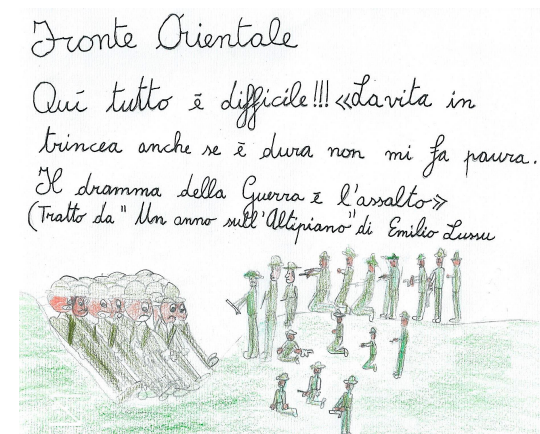 Fronte Orientale
Quí tutto ē difficile!!! «La vita in
trincea anche se ē dura non mi fa paura.
Il dramma della Guerra ē l'assalto»
(Tratto da "Un anno sull'Altipiano" di Emilio Lussu